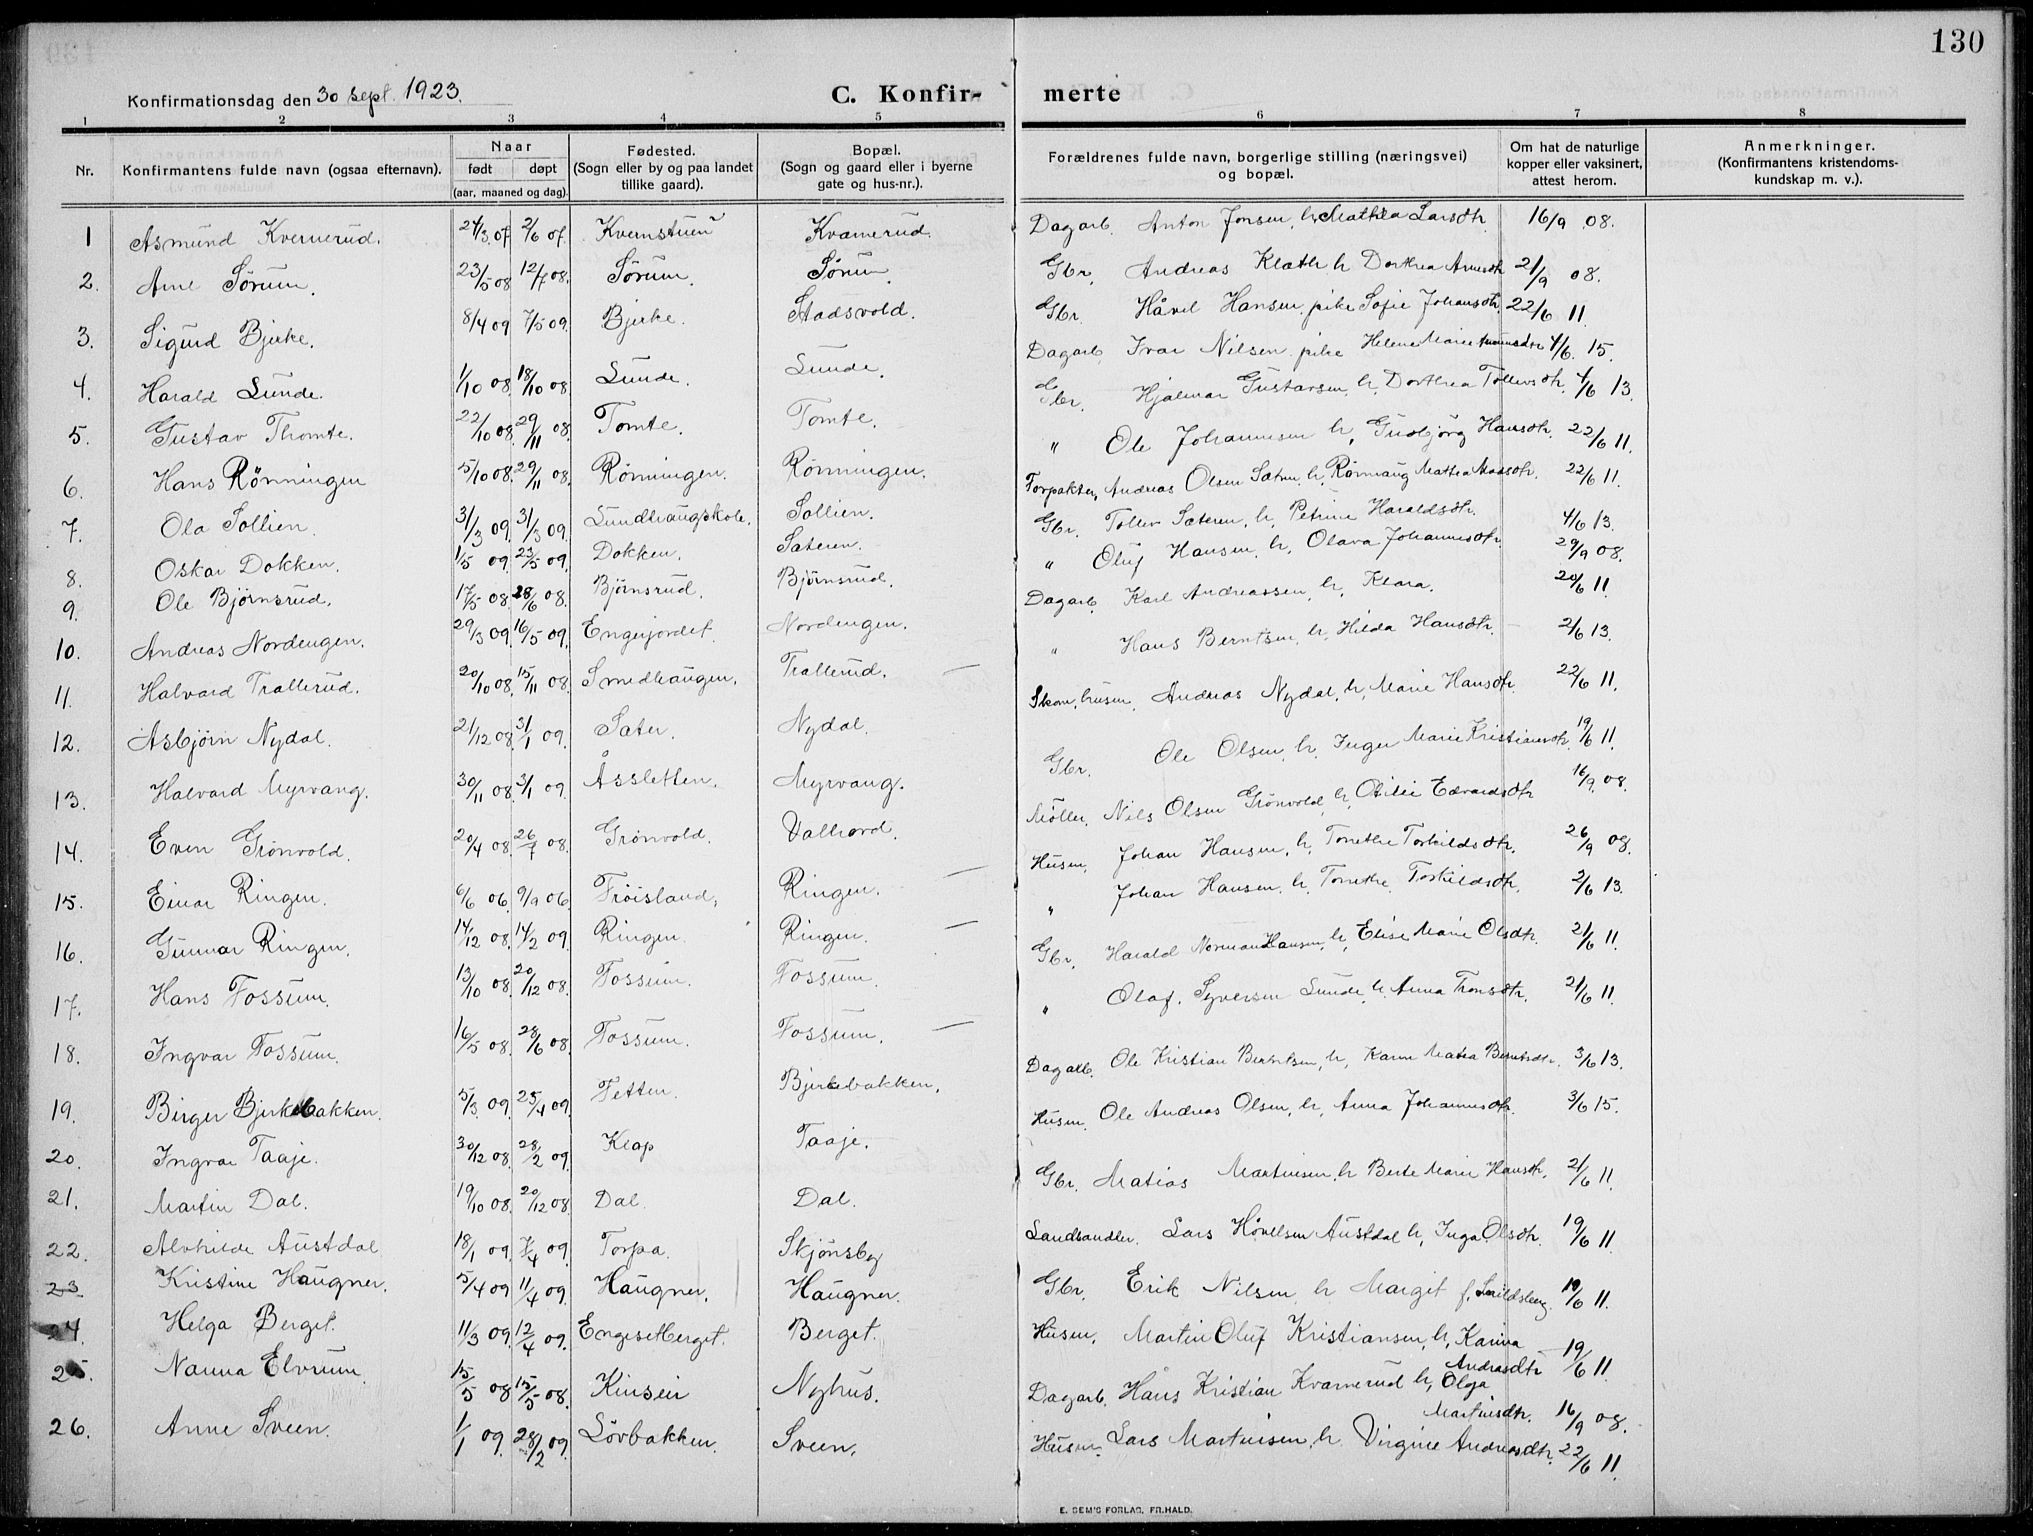 130
Konfirmationsdag den 30 sept. 1923.
C. Konfir-
merte
1 2 3 4 5 6 7 8
Nr. Konfirmantens fulde navn (ogsaa efternavn). Naar født døpt (aar, maaned og dag). Fødested. (Sogn eller by og paa landet tillike gaard). Bopæl. (Sogn og gaard eller i byerne gate og hus-nr.). Forældrenes fulde navn, borgerlige stilling (næringsvei) og bopæl. Om hat de naturlige kopper eller vaksinert, attest herom. Anmerkninger. (Konfirmantens kristendoms- kundskap m. v.).
1 Asmund Kvernerud. 24/3 07 2/6 07 Kvernstuen Kvamerud. Dagarb. Anton Jonsen, h, Mathea Larsdtr. 16/9 08.
2. Arne Sørum. 23/5 08 12/7 08. Sørum. Sørum Gbr. Andreas Klæth h Dorthea Arnesdtr 21/9 08.
3. Sigurd Bjerke. 8/4 09 7/5 09. Bjerke. Stadsvold. Gbr. Håvel Hansen pike Sofie Johansdtr. 22/6 11.
4. Harald Lunde. 1/10 08. 18/10 08 Lunde. Lunde. Dagarb Ivar Nilsen pike Helene Marie 4/6. 15.
5. Gustav Thomte. 22/10 08. 29/11 08. Tomte. Tomte. Gbr. Hjalmar Gustavsen, h, Dorthea Tollevsdtr. 4/6 13.
6. Hans Rönningen 5/10 08. 29/11 08. Rønningen. Rønningen. " Ole Johannesen h, Gudbjørg Hansdtr. 22/6 11.
7. Ola Sollien. 31/3 09. 31/3 09. Lundhaugskole. Sollien. Forpakter, Andreas Olsen Sætren, h, Rønnaug Mathea 22/6 11.
8. Oskar Dokken. 1/5 09. 23/5 09. Dokken. Sæteren. Gbr. Tollev Sæteren, h, Petrine Haraldsdtr. 4/6 13.
9. Ole Bjørnsrud. 17/5 08. 28/6 08. Bjørnsrud. Bjørnsrud. " Oluf Hansen, h, Olava Johannesdtr. 29/9 08.
10. Andreas Nordengen. 29/3 09. 16/5 09. Engejordet. Nordengen. Dagarb. Karl Andreassen, h, Klara. 20/6 11.
11. Halvard Trallerud. 20/10 08. 15/11 08. Smedhaugen. Trallerud. " Hans Berntsen, h, Hilda Hansdtr. 2/6 13.
12. Asbjørn Nydal. 21/12 08. 31/1 09. Sæter. Nydal. Skom. husm. Andreas Nydal, h, Marie Hansdtr. 22/6 11.
13. Halvard Myrvang. 30/11 08. 3/1 09. Åssletten. Myrvang. Gbr. Ole Olsen, h, Inger Marie Kristiansdtr. 19/6 11.
14. Even Grønvold. 20/4 08. 26/7 08. Grønvold. Valhord. Möller, Nils Olsen Grönvold h, Otilie Edvardsdtr 16/9. 08.
15. Einar Ringen. 6/6 06. 9/9 06. Frøisland, Ringen. Husm, Johan Hansen, h, Torethe Torkildsdtr. 26/9 08.
16. Gunnar Ringen. 14/12 08. 14/2 09. Ringen. Ringen. " Johan Hansen, h, Torethe Torkildsdtr. 2/6 13.
17. Hans Fossum. 13/10 08. 20/12 08. Fossum. Fossum. Gbr, Harald Norman Hansen, h, Elise Marie Olsdtr. 21/6 11.
18. Ingvar Fossum. 16/5 08. 28/6 08. Fossum. Fossum. " Olaf Syversen Lunde, h. Anna Tronsdtr. 21/6 11.
19. Birger Bjerkebakken. 5/3 09. 25/4 09. Fetten. Bjerkebakken. Dagarb. Ole Kristian Berntsen, h, Karen Matea Berntsdtr. 3/6 13.
20. Ingvar Taaje. 30/12 08. 28/2 09. Klop Taaje. Husm. Ole Andreas Olsen, h, Anna Johannesdtr. 3/6 15.
21. Martin Dal. 19/10 08. 20/12 08. Dal. Dal. Gbr. Matias Martinsen, h Berte Marie Hansdtr. 21/6 11.
22. Alvhilde Austdal 18/1 09. 7/4 09. Torpa. Skjønsby Landhandler. Lars Hövelsen Austdal h, Inga Olsdtr. 19/6 11.
23 Kristine Haugner. 5/4 09 11/4 09. Haugner. Haugner. Gbr. Erik Nilsen h Margit f. 19/6 11.
24. Helga Berget. 11/3 09. 12/4 09. Engesetberget. Berget. Husm. Martin Oluf Kristiansen, h, Karina Andreasdtr 19/6 11.
25. Nanna Elvrum. 15/5 08. 15/5 08. Kinsen Nyhus. Dagarb. Hans Kristian Kvamerud h, Olga Martinsdtr. 16/9 08.
26. Anne Sveen. 1/1 09. 28/2 09. Lövbakken. Sveen. Husm. Lars Martinsen, h Virginie Andreasdtr. 22/6 11.
E. SEM'S FORLAG, FR.HALD.